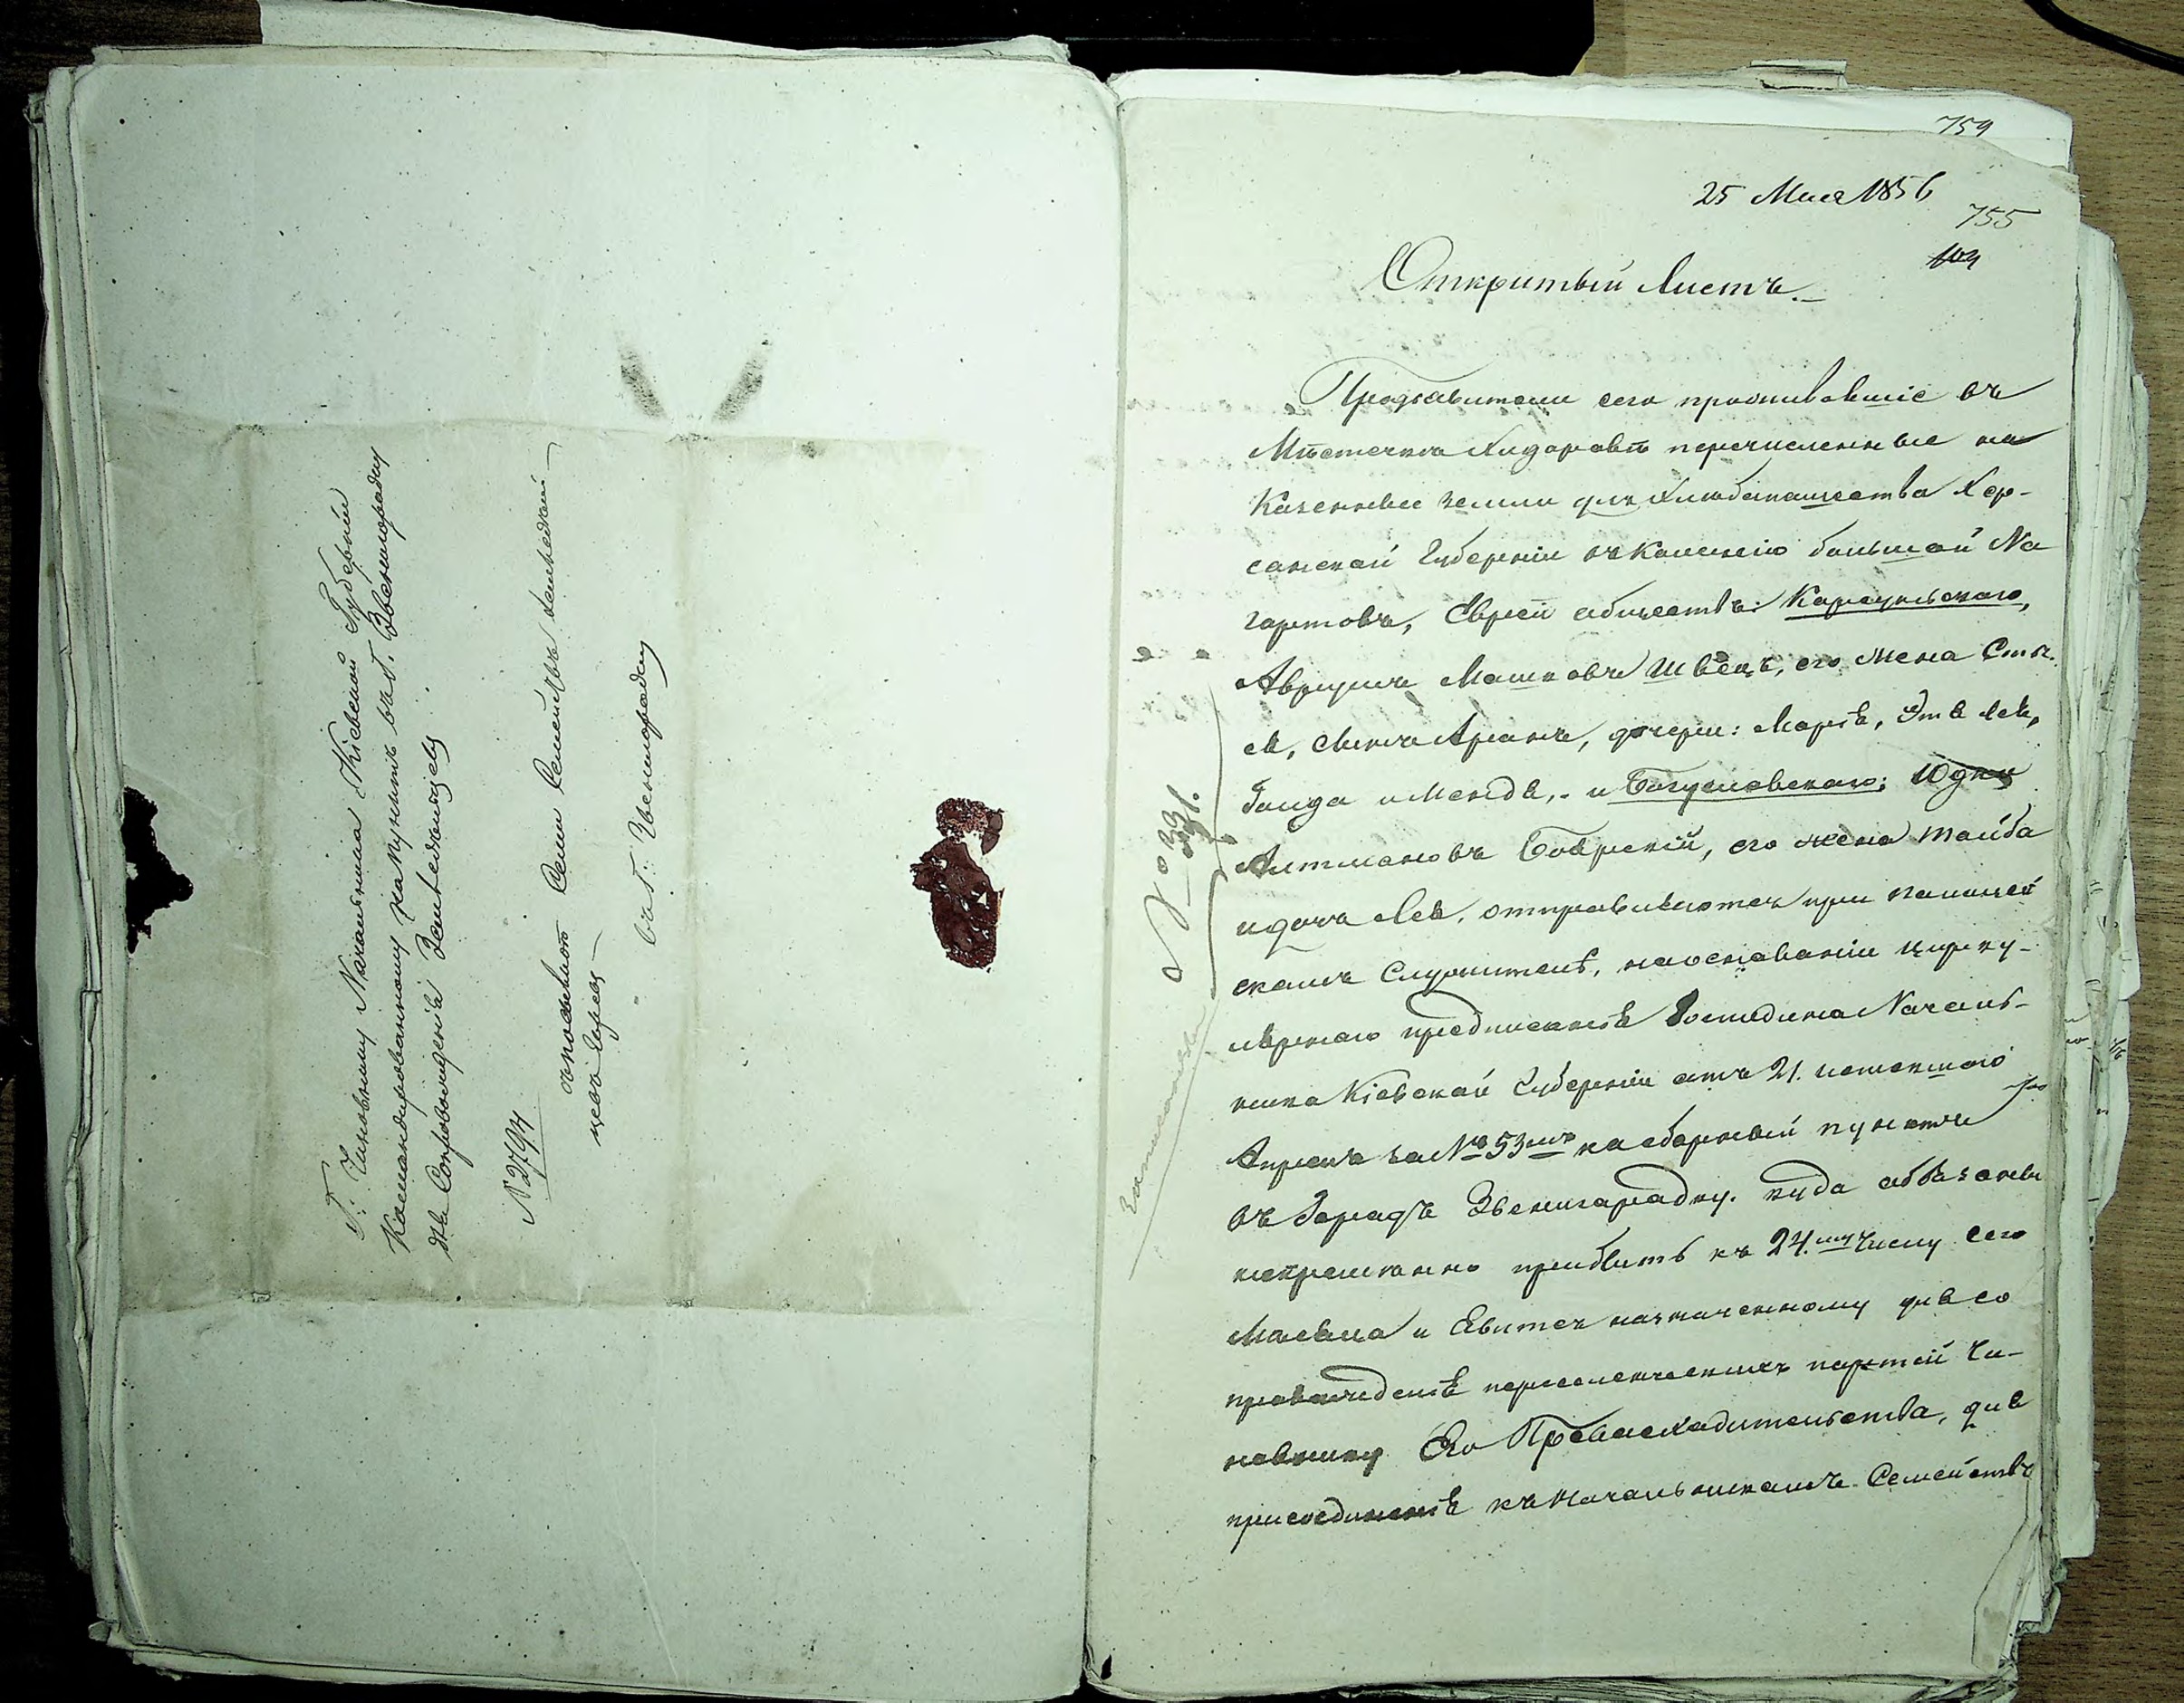 Г: Чиновнику Начальника Кіевской Губерніи
Коммандированному на пунктъ въ г. Звенигородку
для Сопровожденія Землевладельцевъ
№ 2794
съ посылкою Семи Семействъ земледѣль
цевъ Евреевъ
въ г: Звенигородку
759
25 Мая 1856
755
104
Открытый Листъ.
Предъявители сего проживавшіе въ
Мѣстечкѣ Ходоровѣ перечисленные на
Казенные земли для Хлѣбопашества Хер-
сонской Губерніи въ Колонію большой На
гартовъ, Евреи обществъ: Корсунскаго,
Аврумъ Мошковъ Швецъ, его жена Сто
ся, сынъ Аронъ, дочери: Марія, Этя Лея,
Голда и Мендя, и Богуславскаго: Юдко
Антмановъ Боярскій, его жена Тайба
и дочь Лея, отправляются при полицей
скомъ Служителѣ, на основаніи цирку-
лярнаго предписанія Господина Началь-
ника Кіевской Губерніи отъ 21. истекшаго
Апрѣля за № 53мъ на сборный пунктъ
въ Городъ Звенигородку. куда обязаны
непремѣнно прибыть къ 24.му числу сего
Мѣсяца и Явится назначенному для со
провожденія переселенческихъ партей Чи-
новнику Его Превосходительства, для
присоединенія къ Начальникамъ Семействъ
№ 331.